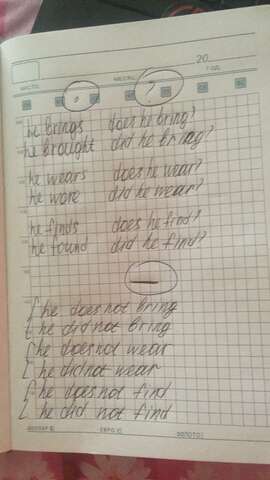 20
.
?
he brings does he bring?
he brought did he bring?
he wears does he wear?
he wore did he wear?
he finds does he find?
he found did he find?
—
he does not bring
he did not bring
he does not wear
he did not wear
he does not find
he did not find